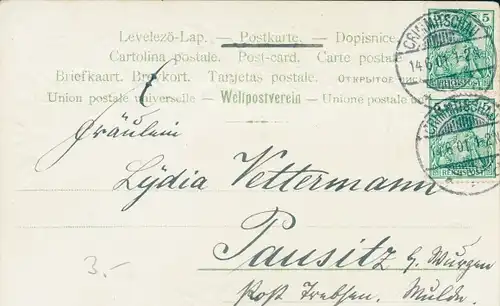 Levelező-Lap. — Postkarte. — Dopisnice.
Cartolina postale. Post-card. Carte postale
Briefkaart. Brevkort. Tarjetas postale. ОТКРЫТОЕ
Union postale universelle — Weltpostverein — Unione postale
CRIMMITSCHAU
14 6 01 1-2
5
CRIMMITSCHAU
14 6 01 1-2
Fräulein
Lydia Vettermann
Pausitz b. Wurzen
Post Trebsen, Mulde.
3.-